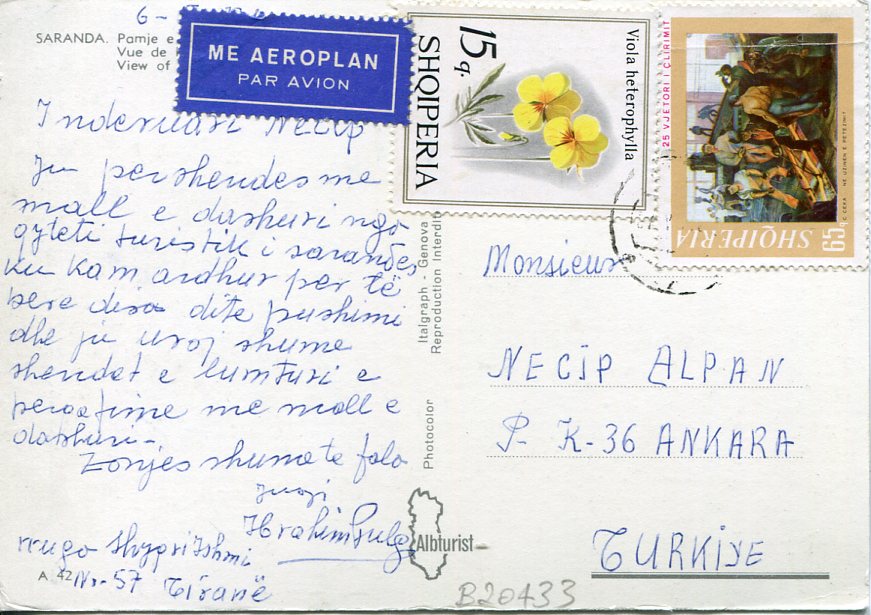 6-
SARANDA. Pamje e
Vue de
View of
ME AEROPLAN
PAR AVION
15q.
SHQIPERIA
Viola heterophylla
25 VJETORI I ÇLIRIMIT
NE UZINEN E PETEZIMIT
SHQIPERIA
65q
Inderuari Necip
Ju pershendes me
mall e dashuri nga
qyteti turistik i sarandës,
ku kam ardhur per të
bere disa dite pushimi
dhe ju uroj shume
shendet e lumturi e
perqafime me mall e
dashuri-
Zonjes shumate fala
Juaji
Ibrahim
rruga Shyqri Ishmi
Nr-57 Tiranë
A. 42
Italgraph - Genova
Reproduction Interdit
Photocolor
Albturist
Monsieur
NECİP ALPAN
P- K-36 ANKARA
TURKİYE
B20433